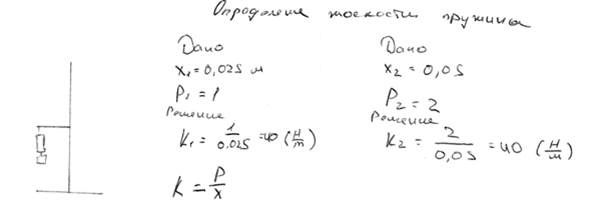 Определение жоскости пружины
Дано
x₁ = 0,025 м
P₁ = 1
Решение
K₁ = 1/0,025 = 40 (Н/м)
K = P/x
Дано
x₂ = 0,05
P₂ = 2
Решение
K₂ = 2/0,05 = 40 (Н/м)